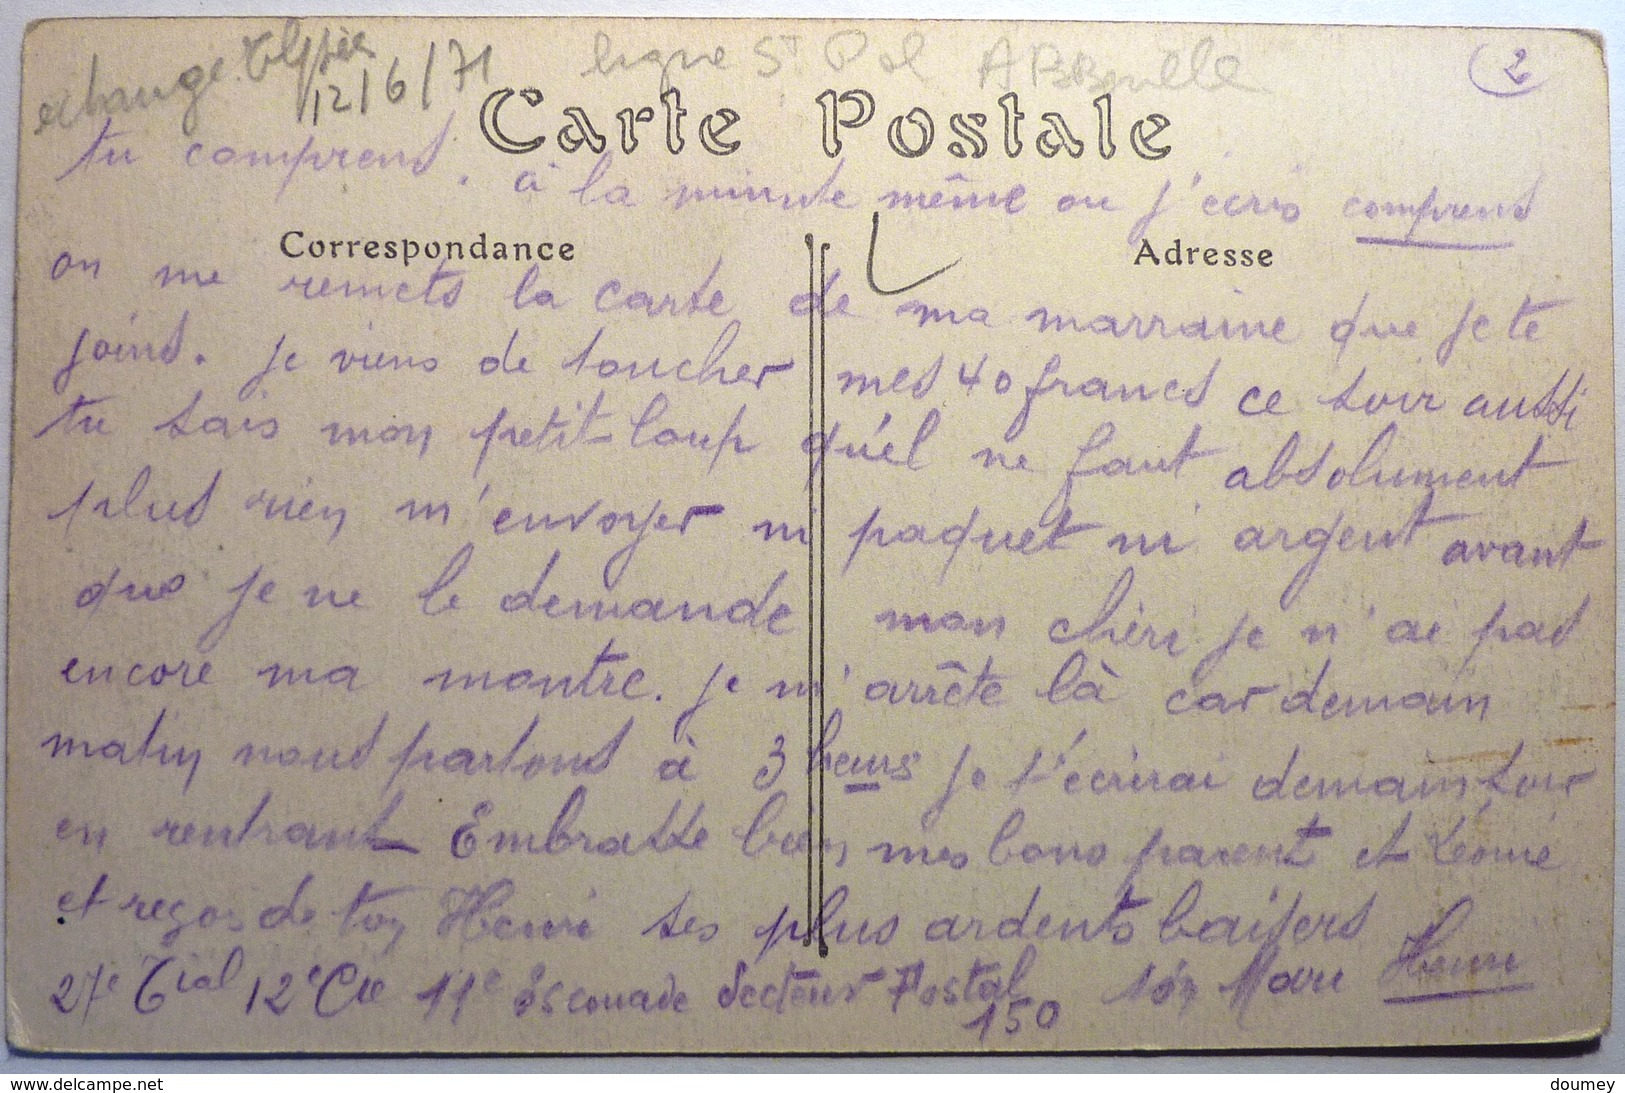 echange
12/6/71
ligne St Pol ABBeville
2
Carte Postale
tu comprend. à la minute même ou j'écris comprend
Correspondance
Adresse
on me remets la carte de ma marraine que je te
joins. je viens de toucher mes 40 francs ce soir aussi
tu sais mon petit loup qu'el ne faut absolument
plus rien m'envoyer ni paquet ni argent avant
que je ne le demande mon chéri je n'ai pas
encore ma montre. je m'arrête là car demain
matin nous partons à 3 heurs je t'écrirai demain soir
en rentrant Embrasse bien mes bons parent et Léonie
et reçois de ton Henri ses plus ardents baisers
27e Tial 12e Cie 11e escouade Secteur Postal 150 Ton Mari Henri
delcampe.net
doumey